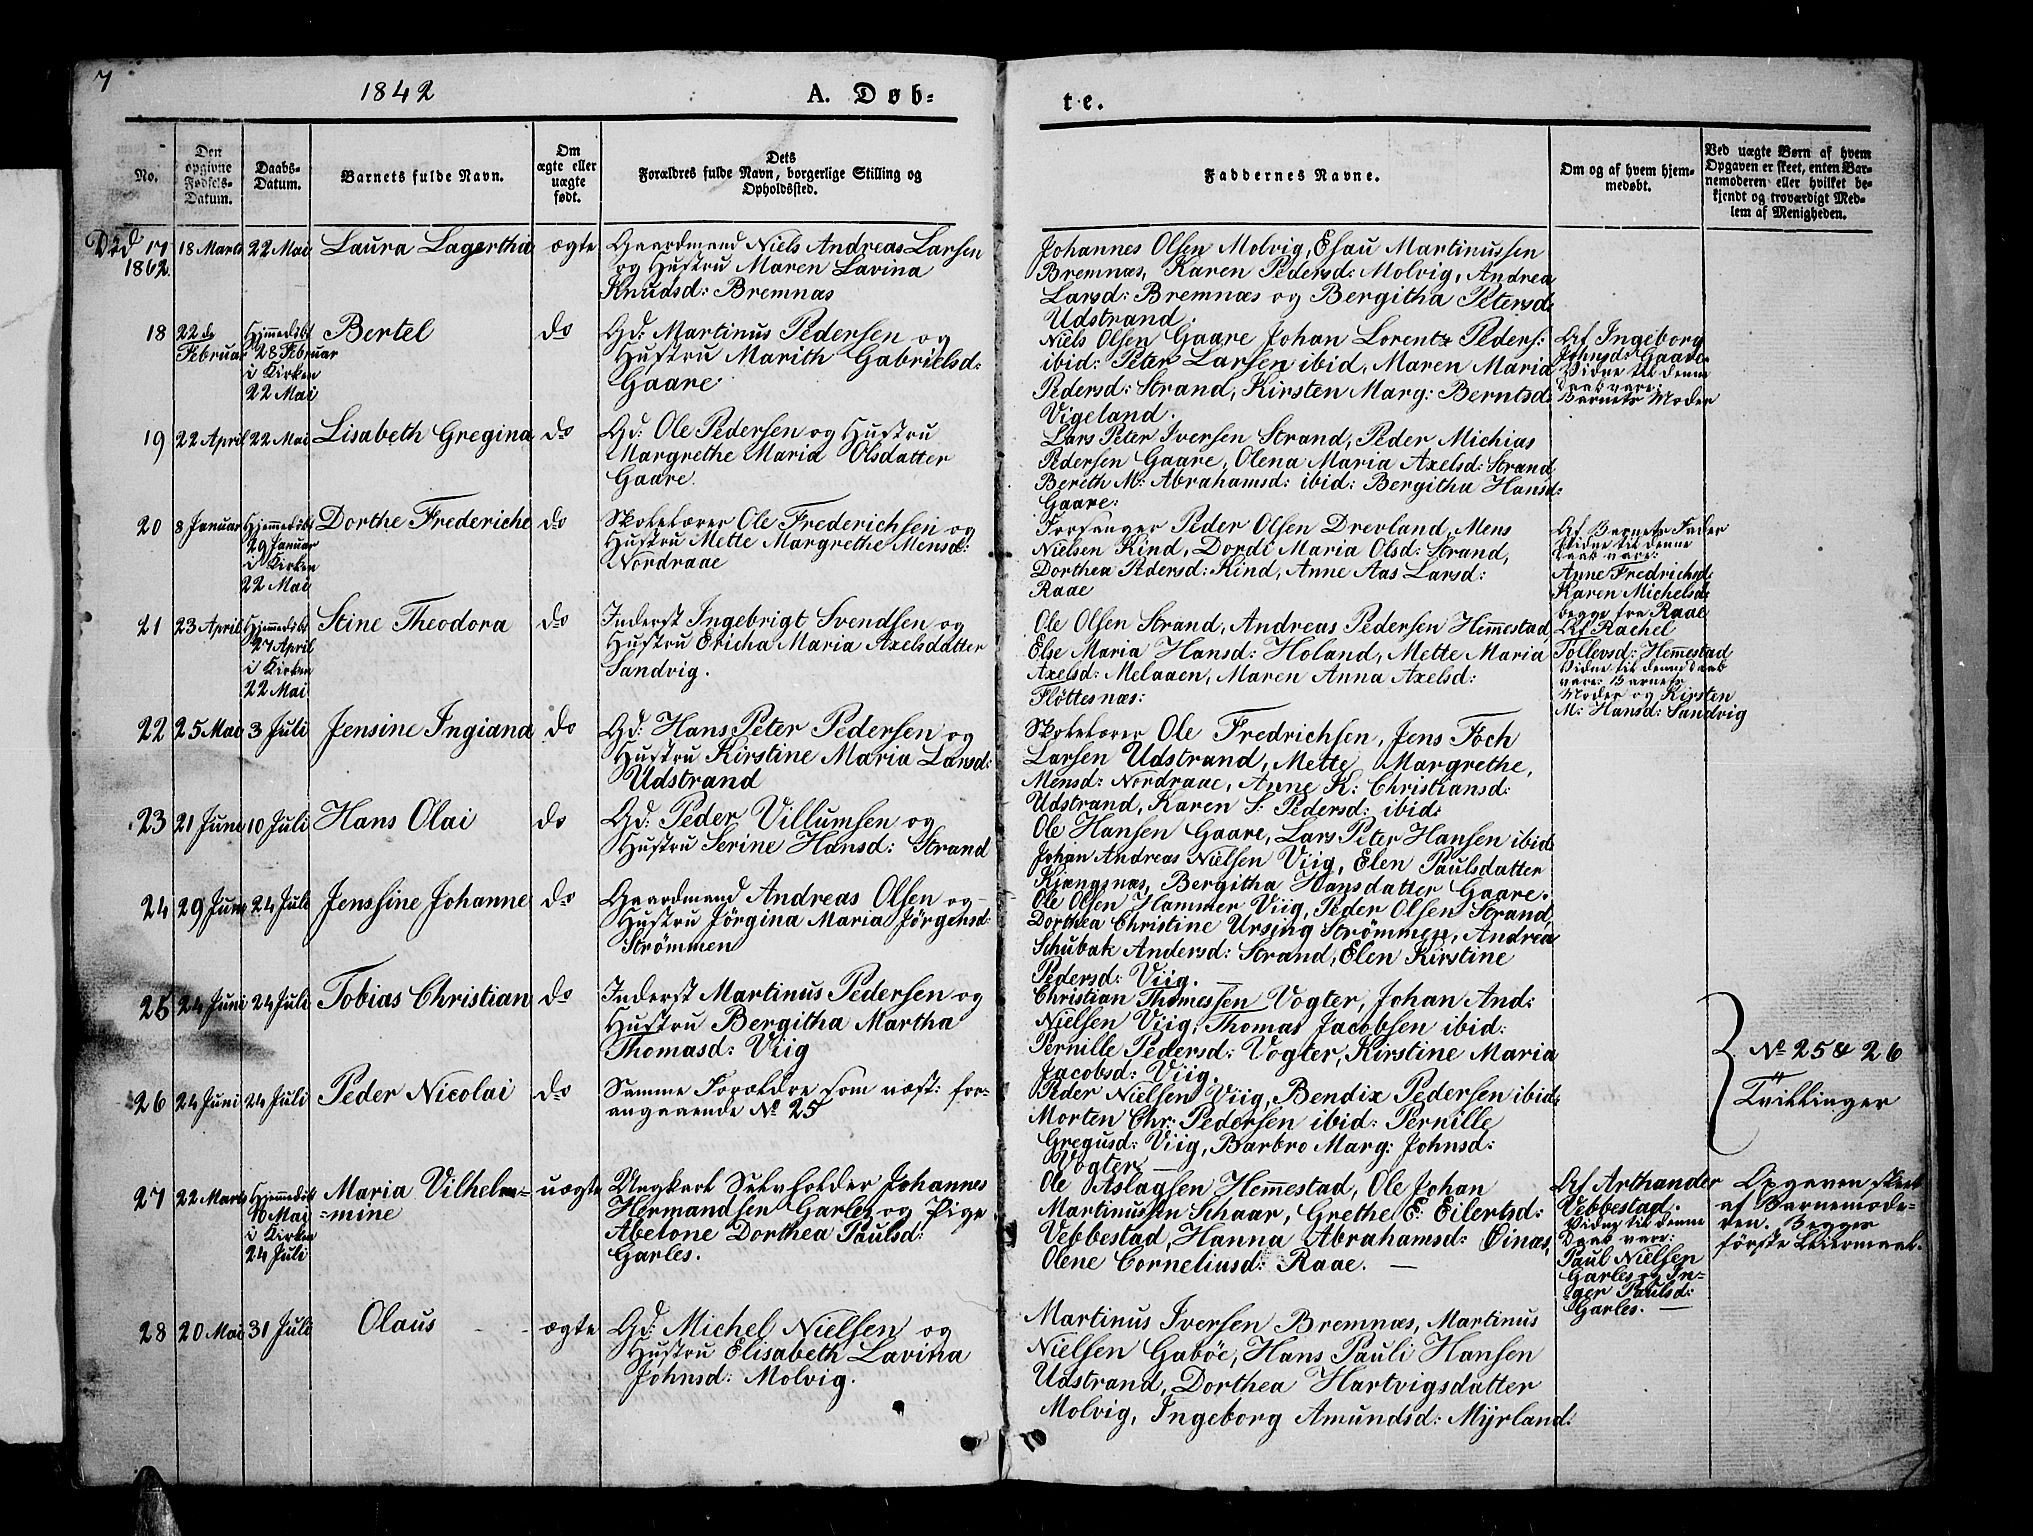 7
1842
A. Døb-
te.
No.
Den
opgivne
Fødsels-
Datum.
Daabs-
Datum.
Barnets fulde Navn.
Om
ægte eller
uægte
født.
Dets
Forældres fulde Navn, borgerlige Stilling og
Opholdssted.
Faddernes Navne.
Om og af hvem hjem-
medøbt.
Ved uægte Børn af hvem
Opgaven er skeet, enten Bar-
nemoderen eller hvilket be-
kjendt og troværdigt Med-
lem af Menigheden.
Død
1862.
17
18 Marts
22 Mai
Laura Lagertha
ægte
Gaardmand Niels Andreas Larsen
og Hustru Maren Lavina
Knudsd: Bremnæs
Johannes Olsen Molvig, Esau Martinussen
Bremnæs, Karen Pedersd: Molvig, Andrea
Larsd: Bremnæs og Bergitha Petersd:
Udstrand.
18
22de
Februar
Hjemedøbt
28 Februar
i Kirken
22 Mai
Bertel
do
Gd: Martinus Pedersen og
Hustru Marith Gabrielsd:
Gaare
Niels Olsen Gaare Johan Lorentz Peders:
ibid: Peter Larsen ibid, Maren Maria
Pedersd: Strand, Kirsten Marg: Berntsd:
Vigeland.
Af Ingeborg
Johnsd: Gaare.
Vidne til denne
Daab vare:
Barnets Moder
19
22 April
22 Mai
Lisabeth Gregina
do
Gd: Ole Pedersen og Hustru
Margrethe Maria Olsdatter
Gaare.
Lars Peter Iversen Strand, Peder Michias
Pedersen Gaare, Olena Maria Axelsd: Strand
Bereth M: Abrahamsd: ibid: Bergitha Hansd:
Gaare:
20
8 Januar
Hjemmedøbt
29 Januar
i Kirken
22 Mai
Dorthe Frederiche
do
Skolelærer Ole Frederichsen og
Hustru Mette Margrethe Mensd:
Nordraae
Forsanger Peder Olsen Drevland, Mens
Nielsen Kind, Dordi Maria Olsd: Strand,
Dorthea Pedersd: Kind, Anne Aas Larsd:
Raae
Af Barnets Fader
Vidne til denne
Daab vare:
Anne Fredrichsd:
Karen Michelsd:
begge fra Raae
21
23 April
Hjemedøbt
27 April
i Kirken
22 Mai
Stine Theodora
do
Inderst Ingebrigt Svendsen og
Hustru Ericha Maria Axelsdatter
Sandvig.
Ole Olsen Strand, Andreas Pedersen Hemestad
Else Maria Hansd: Holand, Mette Maria
Axelsd: Melaaen, Maren Anna Axelsd:
Fløttesnæs:
Af Rachel
Tollevsd: Hemestad
Vidne til denne Daab
vare: Barnets
Moder og Kirsten
M: Hansd: Sandvig
22
25 Mai
3 Juli
Jensine Ingiana
do
Gd: Hans Peter Pedersen og
Hustru Kirstine Maria Larsd:
Udstrand
Skolelærer Ole Fredrichsen, Jens Foch
Larsen Udstrand, Mette Margrethe,
Mensd: Nordraae, Anne K: Christiansd:
Udstrand, Karen S: Pedersd: ibid:
23
21 Juni
10 Juli
Hans Olai
do
Gd: Peder Villumsen og
Hustru Serine Hansd: Strand
Ole Hansen Gaare, Lars Peter Hansen ibid:
Johan Andreas Nielsen Viig, Elen Paulsdatter
Kjængsnæs, Bergitha Hansdatter Gaare.
24
29 Juni
24 Juli
Jenssine Johanne
do
Gaardmand Andreas Olsen og
Hustru Jörgina Maria Jörgensd:
Strömmen
Ole Olsen Hammer Viig, Peder Olsen Strand,
Dorthea Christine Ursing Strömmen, Andrea
Schubak Andersd: Strand, Elen Kirstine
Pedersd: Viig.
25
24 Juni
24 Juli
Tobias Christian
do
Inderst Martinus Pedersen og
Hustru Bergitha Martha
Thomasd: Viig
Christian Thomessen Vogter, Johan And:
Nielsen Viig, Thomas Jacobsen ibid:
Pernille Pedersd: Vogter, Kirstine Maria
Jacobsd: Viig.
No 25 & 26
Tvillinger
26
24 Juni
24 Juli
Peder Nicolai
do
Samme Forældre som næst: for-
angaaende No 25
Peder Nielsen Viig, Bendix Pedersen ibid:
Morten Chr: Pedersen ibid: Pernille
Gregusd: Viig, Barbro Marg: Johnsd:
Vogter
27
22 Marts
Hjemmedøbt
10 Mai
i Kirken
24 Juli
Maria Vilhelm=
=mine
uægte
Ungkarl Selvholder Johannes
Hermandsen Garles og Pige
Abelone Dorthea Paulsd:
Garles.
Ole Aslagsen Hemestad, Ole Johan
Martinussen Schaar, Grethe E: Eilertsd:
Vebbestad, Hanna Abrahamsd: Öinæs,
Olene Corneliusd: Raae.
Af Arthander
Vebbestad:
Vidne til denne
Daab vare:
Paul Nielsen
Garles og In-
ger Paulsd:
Garles.
Opgaven skeet
af Barnemode-
ren. Begges
første Leiermaal.
28
20 Mai
31 Juli
Olaus
ægte
Gd: Michel Nielsen og
Hustru Elisabeth Lavina
Johnsd: Molvig.
Martinus Iversen Bremnæs, Martinus
Nielsen Gaböe, Hans Pauli Hansen
Udstrand, Dorthea Hartvigsdatter
Molvig, Ingeborg Amundsd: Myrland: